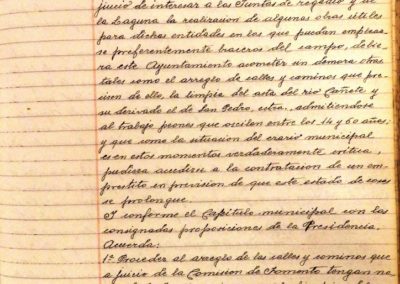 juicio de interesar a las Juntas de regadío y de
la Laguna la realización de algunas obras útiles
para dichas entidades en los que puedan emplear-
se preferentemente braceros del campo, debie-
ra este Ayuntamiento acometer sin demora otras
tales como el arreglo de calles y caminos que pre-
cisen de ello, la limpia del acta del río Cañete y
su derivado el de San Pedro, extra, admitiendose
al trabajo peones que oscilen entre los 14 y 60 años;
y que como la situación del erario municipal
es en estos momentos verdaderamente crítica,
pudiera acudirse a la contratación de un em-
prestito en previsión de que este estado de cosas
se prolongue.
Y conforme el Capítulo municipal con las
consignadas proposiciones de la Presidencia,
Acuerda:
1º Proceder al arreglo de las calles y caminos que
a juicio de la Comisión de Fomento tengan ne-